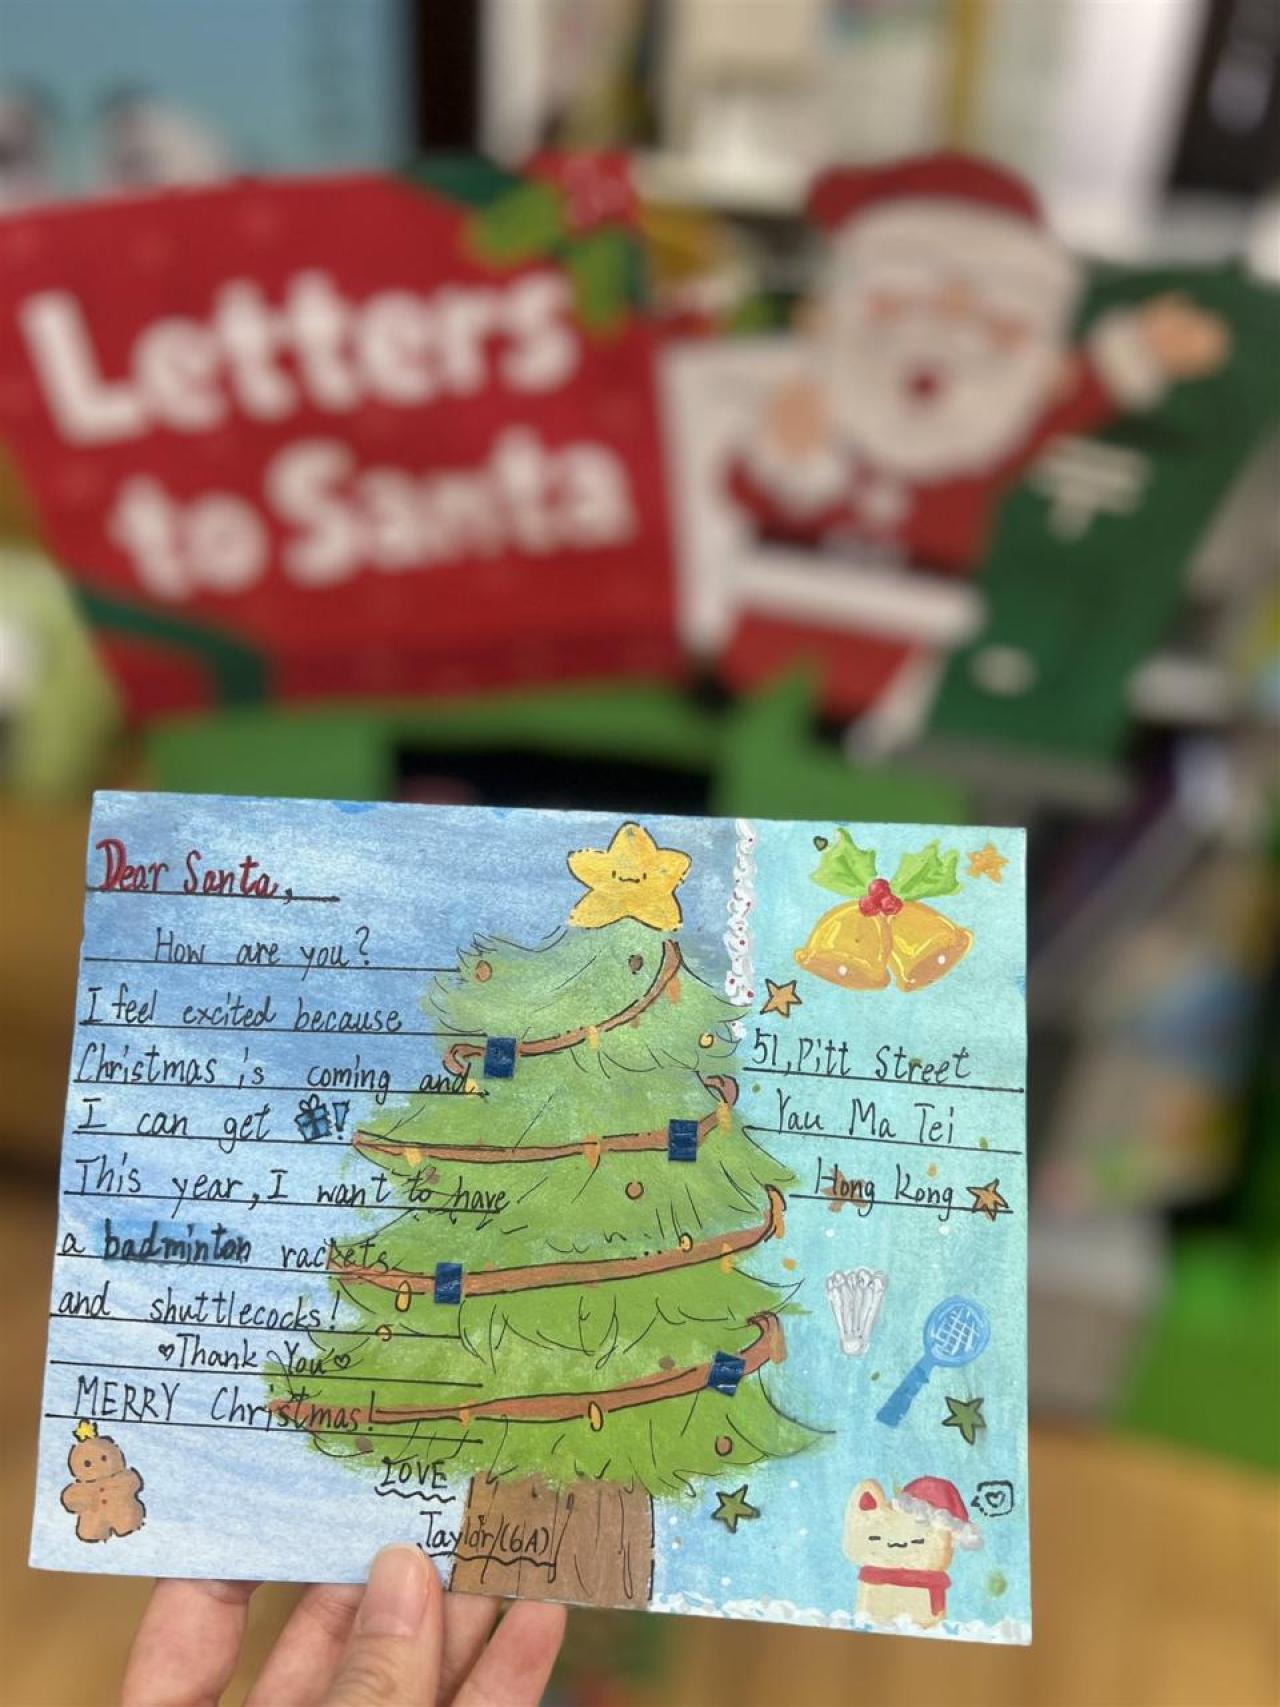 Letters
to Santa
Dear Santa,
How are you?
I feel excited because
Christmas is coming and
I can get !
This year, I want to have
a badminton rackets
and shuttlecocks!
Thank You
MERRY Christmas!
LOVE
Taylor (6A)
51, Pitt Street
Yau Ma Tei
Hong Kong